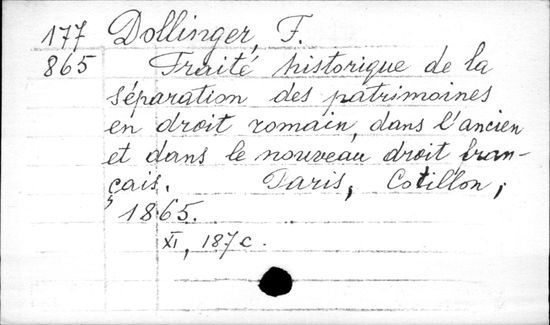 177 Dollinger, F.
865 Traité historique de la
séparation des patrimoines
en droit romain, dans l'ancien
et dans le nouveau droit fran-
çais. Paris, Cotillon,
1865.
XI, 187 c.